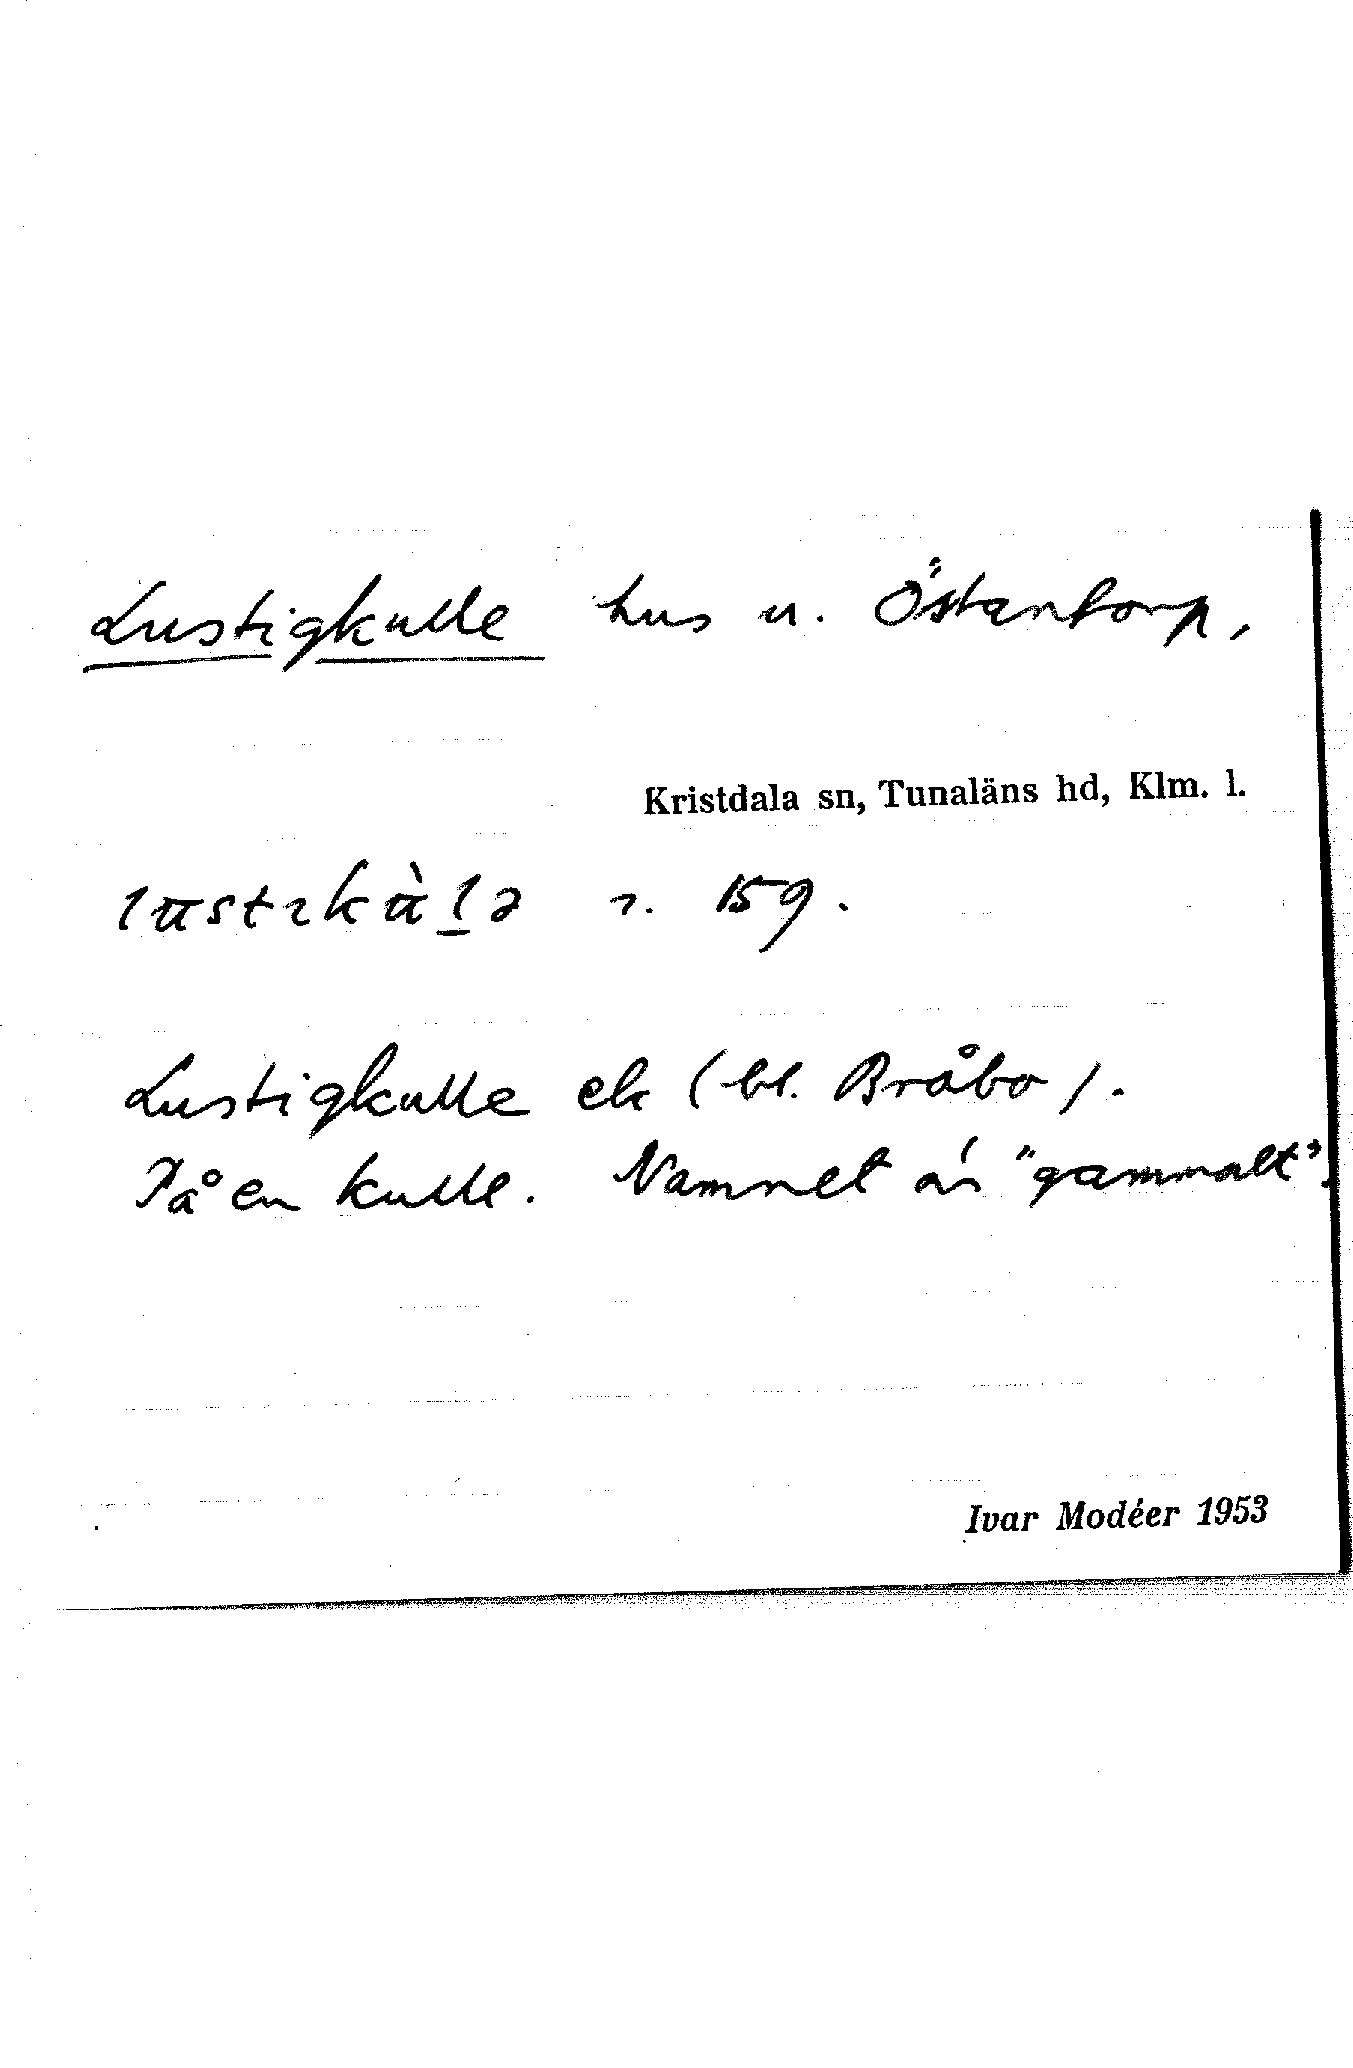 Lustigkulle hus u. Östantorp,
Kristdala sn, Tunaläns hd, Klm. l.
lustɩkùlə r. 159.
Lustigkulle ek (bl. Bråbo).
På en kulle. Namnet är "gammalt".
Ivar Modéer 1953